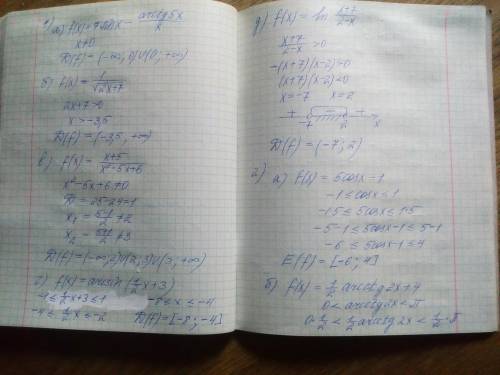 а) f(x) = 7cos x - arcctg 5x / x
x≠0
D(f) = (-∞; 0)U(0; +∞)
б) f(x) = 1/√(2x+7)
2x+7>0
x > -3,5
D(f) = (-3,5; +∞)
в) f(x) = (x+5)/(x²-5x+6)
x²-5x+6≠0
D = 25-24=1
x₁ = (5-1)/2 ≠ 2
x₂ = (5+1)/2 ≠ 3
D(f) = (-∞; 2)U(2; 3)U(3; +∞)
г) f(x) = arcsin(½x+3)
-1 ≤ ½x+3 ≤ 1
-8 ≤ x ≤ -4
-4 ≤ ½x ≤ -2
D(f) = [-8; -4]
д) f(x) = ln (x+7)/(2-x)
(x+7)/(2-x) > 0
-(x+7)(x-2)>0
(x+7)(x-2)<0
x=-7 x=2
+ - +
-7 2 x
D(f) = (-7; 2)
2) а) f(x) = 5cosx-1
-1 ≤ cosx ≤ 1
-1·5 ≤ 5cosx ≤ 1·5
-5-1 ≤ 5cosx-1 ≤ 5-1
-6 ≤ 5cosx-1 ≤ 4
E(f) = [-6; 4]
б) f(x) = ½ arcctg 2x + 4
0 < arcctg 2x < π
0·½ < ½ arcctg 2x < ½·π